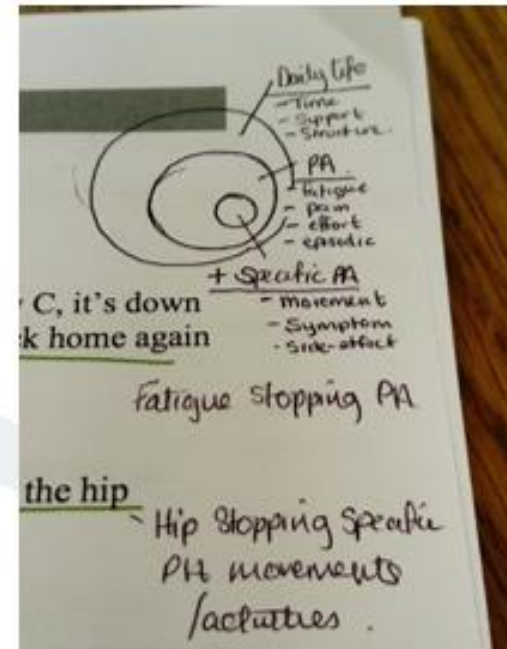 Daily Life
- Time
- Support
- Structure.
PA
- fatigue
- pain
- effort
- episodic
+ Specific PA
- movement
- Symptom
- Side-effect
C, it's down
k home again
Fatigue Stopping PA
the hip
Hip Stopping Specific
PA movements
/activities.